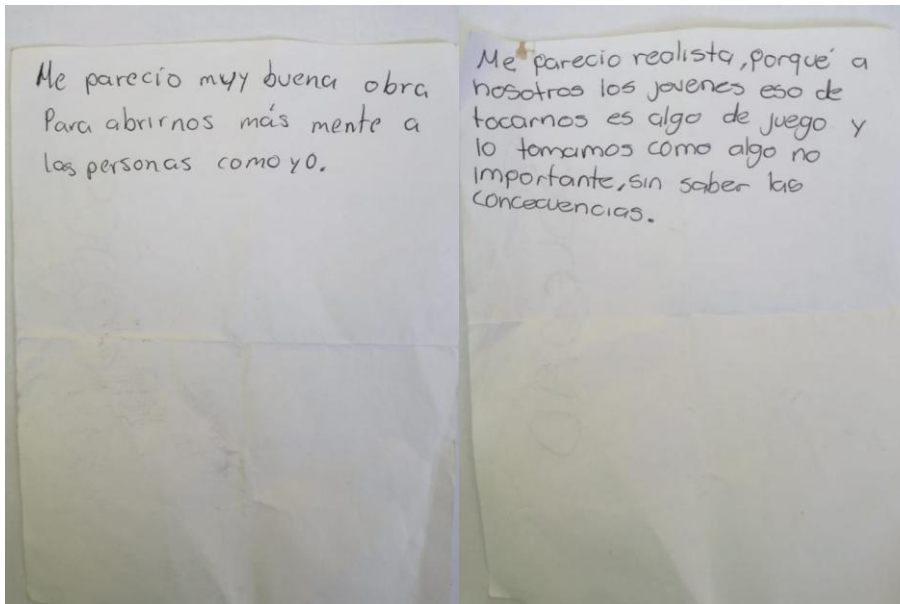 Me parecío muy buena obra
Para abrirnos más mente a
las personas como yo.
Me parecio realista, porqué a
nosotros los jovenes eso de
tocarnos es algo de juego y
lo tomamos como algo no
importante, sin saber las
concecuencias.